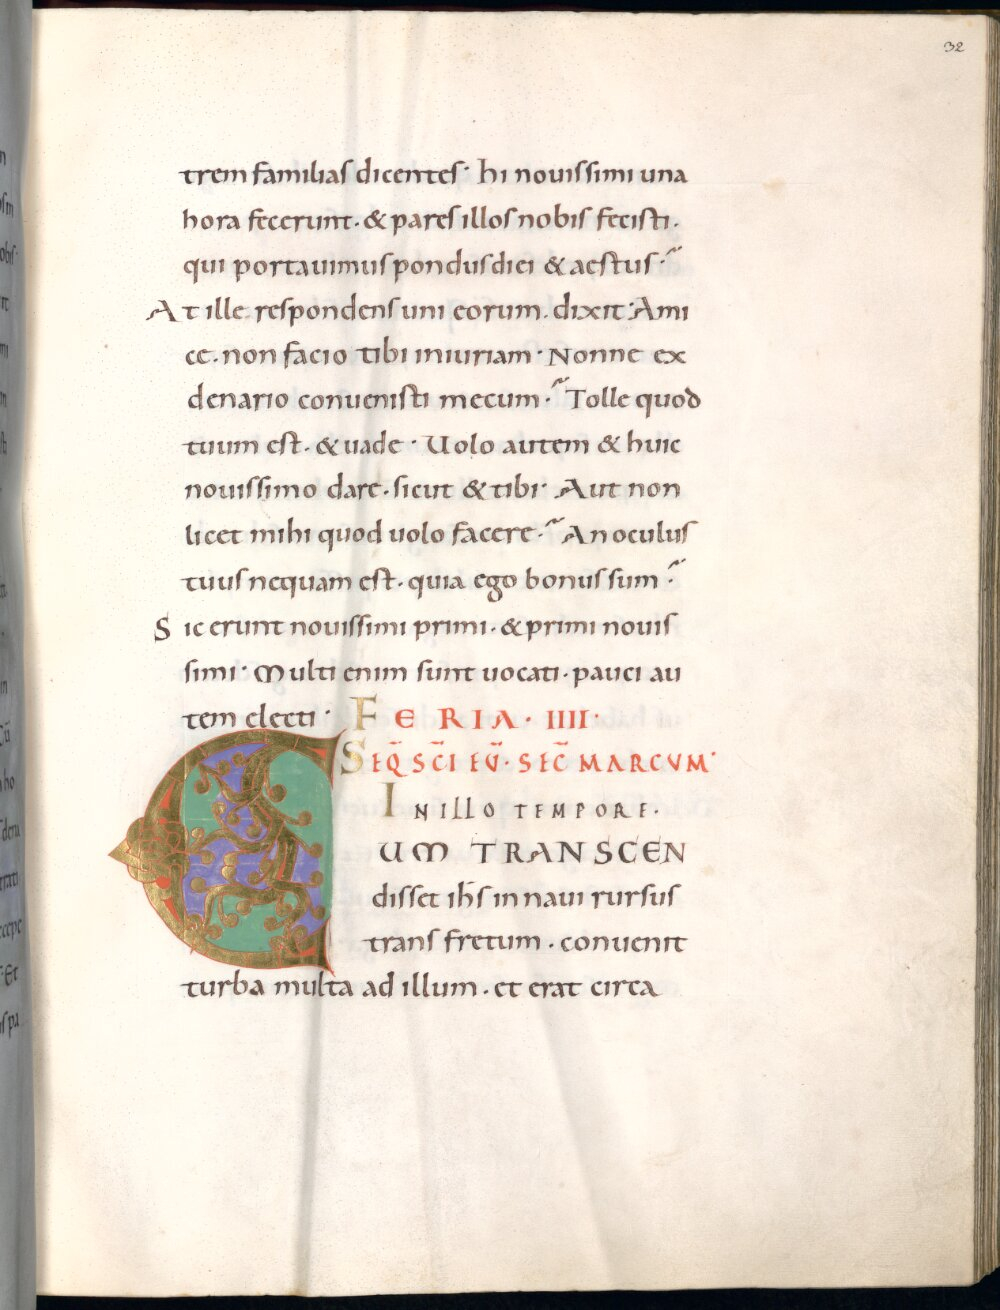 32
trem familias dicentes· hi nouissimi una
hora fecerunt· & pares illos nobis fecisti·
qui portauimus pondus diei & aestus·
At ille respondens uni eorum· dixit· Ami
ce· non facio tibi iniuriam· Nonne ex
denario conuenisti mecum· Tolle quod
tuum est· & uade· Uolo autem & huic
nouissimo dare· sicut & tibi· Aut non
licet mihi quod uolo facere· An oculus
tuus nequam est· quia ego bonus sum·
Sic erunt nouissimi primi· & primi nouis
simi· Multi enim sunt uocati· pauci au
tem electi· FERIA· IIII·
SEQ̄ SC̄I EŪ· SEC̄ MARCUM·
IN ILLO TEMPORE·
CUM TRANSCEN
disset ih̄s in naui rursus
trans fretum· conuenit
turba multa ad illum· et erat circa